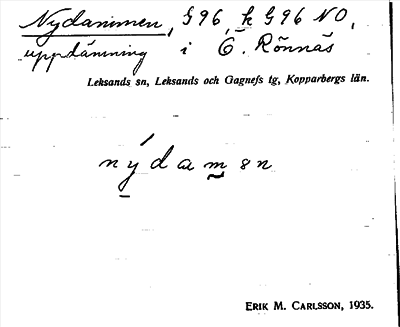 Nydammen, § 96, k G 96 NO,
uppdämning i Ö. Rönnäs
Leksands sn, Leksands och Gagnefs tg, Kopparbergs län.
nýdamən
ERIK M. CARLSSON, 1935.